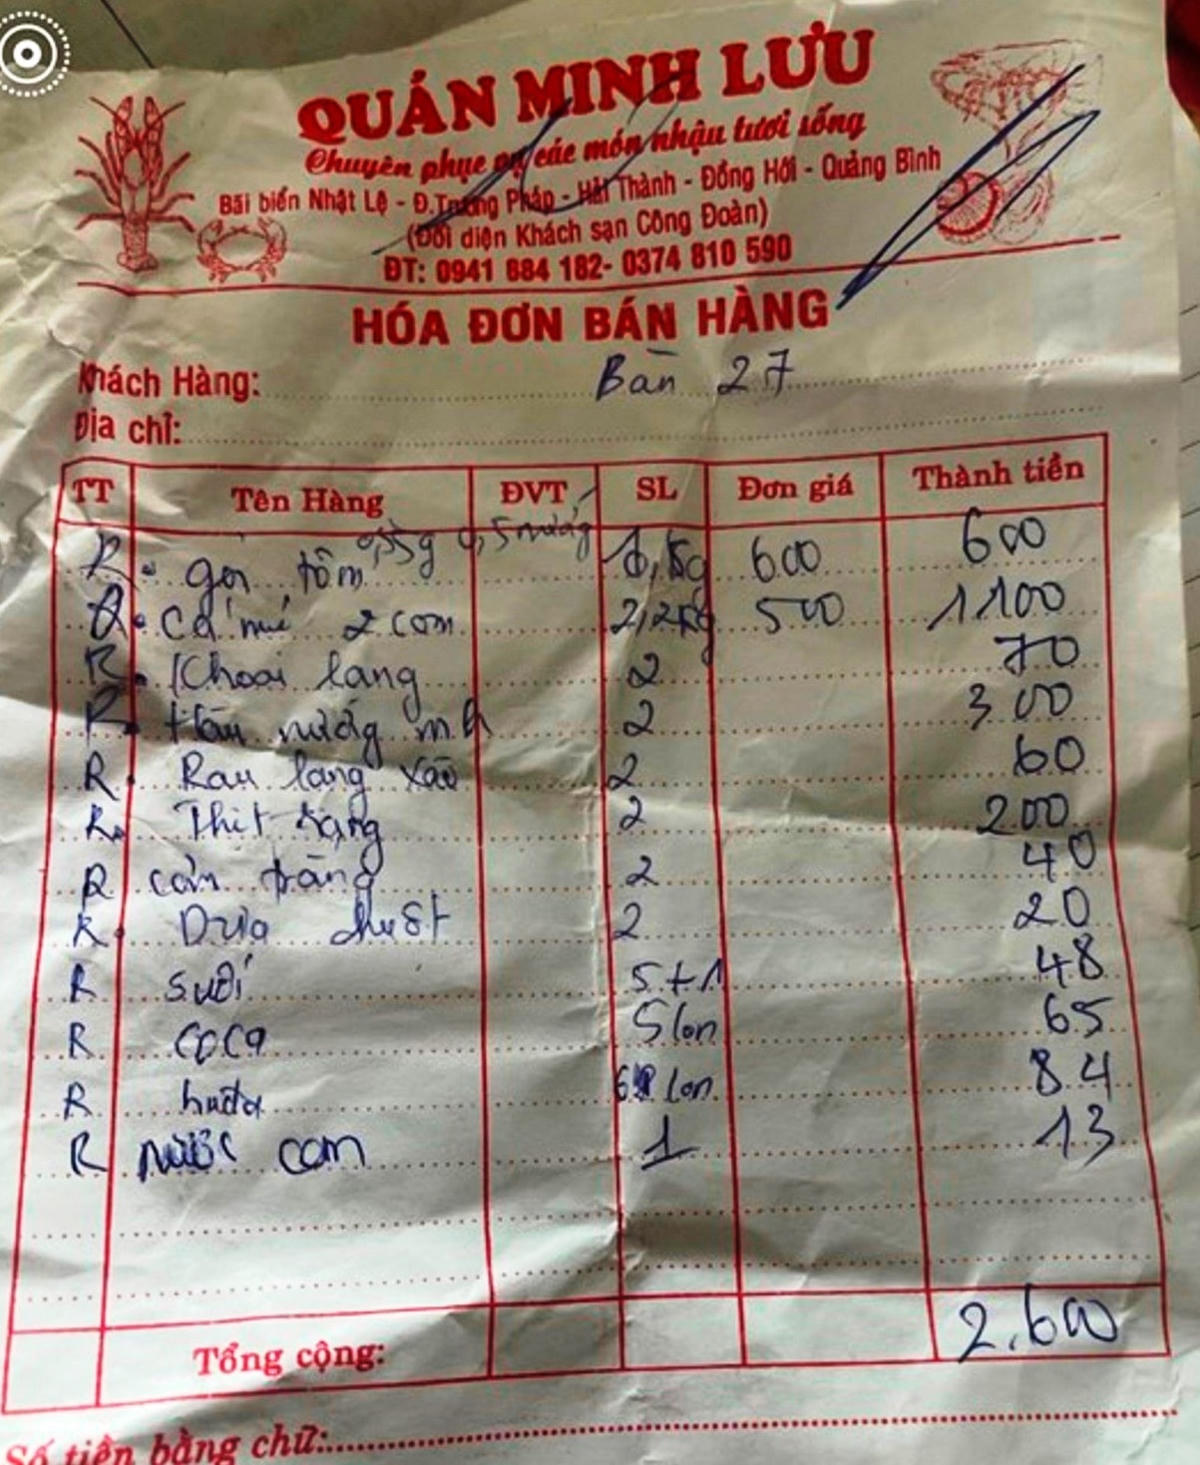 QUÁN MINH LƯU
Chuyên phục vụ các món nhậu tươi sống
Bãi biển Nhật Lệ - Đ.Trương Pháp - Hải Thành - Đồng Hới - Quảng Bình
(Đối diện Khách sạn Công Đoàn)
ĐT: 0941 884 182- 0374 810 590
HÓA ĐƠN BÁN HÀNG
Khách Hàng: Bàn 27
Địa chỉ:
TT Tên Hàng ĐVT SL Đơn giá Thành tiền
R gỏi tôm 0,5 nướng 600 600
R Cá mú 2 com 2,2kg 500 1100
R Khoai lang 2 70
R Hàu nướng mh 2 300
R Rau lang xào 2 60
R Thịt rang 2 200
R cơm trắng 2 40
R Dưa chuột 2 20
R suối 5+1 48
R coca 5 lon 65
R huda lon 84
R nước cam 1 13
Tổng cộng: 2.600
Số tiền bằng chữ: